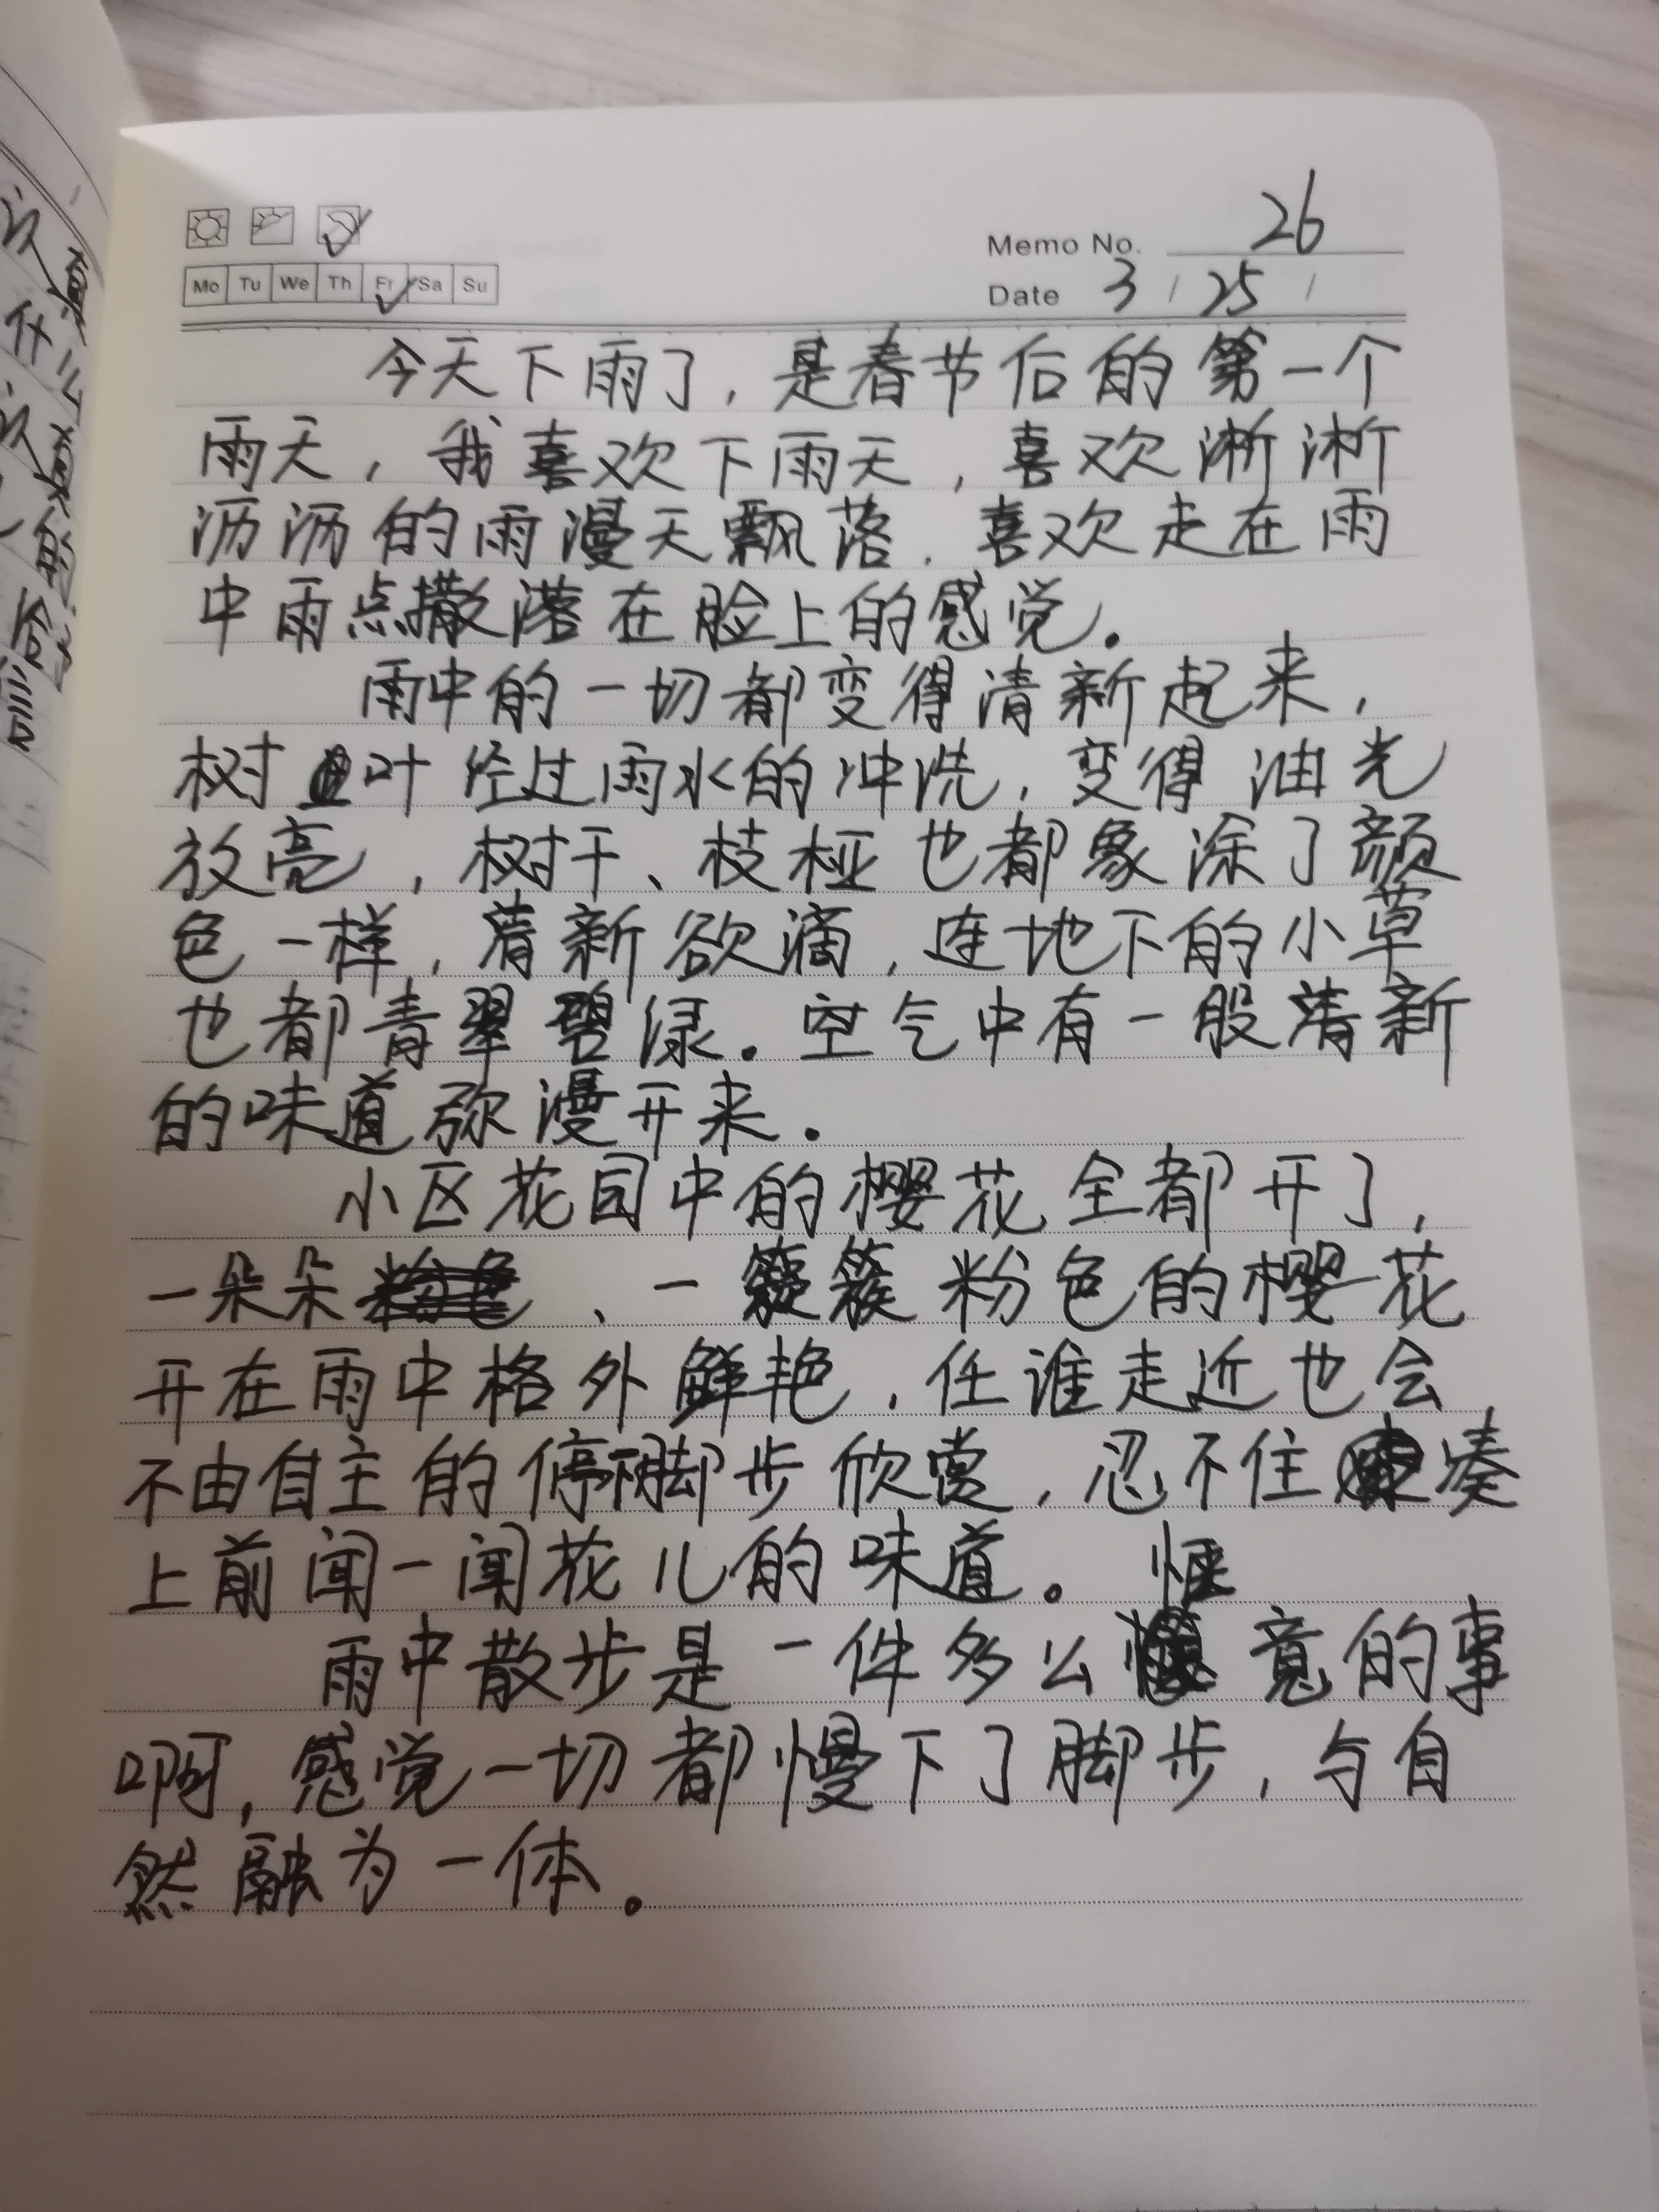 26
Memo No.
Mo Tu We Th Fr Sa Su
Date 3 / 25 /
今天下雨了，是春节后的第一个
雨天，我喜欢下雨天，喜欢淅淅
沥沥的雨漫天飘落，喜欢走在雨
中雨点撒落在脸上的感觉。
雨中的一切都变得清新起来，
树叶经过雨水的冲洗，变得油光
放亮，树干、枝桠也都象涂了颜
色一样，清新欲滴，连地下的小草
也都青翠碧渌。空气中有一股清新
的味道弥漫开来。
小区花园中的樱花全都开了，
一朵朵、一簇簇粉色的樱花
开在雨中格外鲜艳，任谁走近也会
不由自主的停下脚步欣赏，忍不住凑
上前闻一闻花儿的味道。
雨中散步是一件多么惬意的事
啊，感觉一切都慢下了脚步，与自
然融为一体。